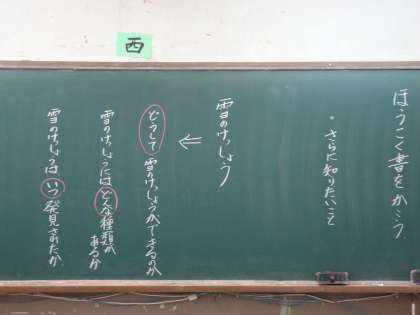 西
ほうこく書をかこう
・さらに知りたいこと
雪のけっしょう
⇐
どうして雪のけっしょうができるのか
雪のけっしょうにはどんな種類があるか
雪のけっしょうはいつ発見されたか